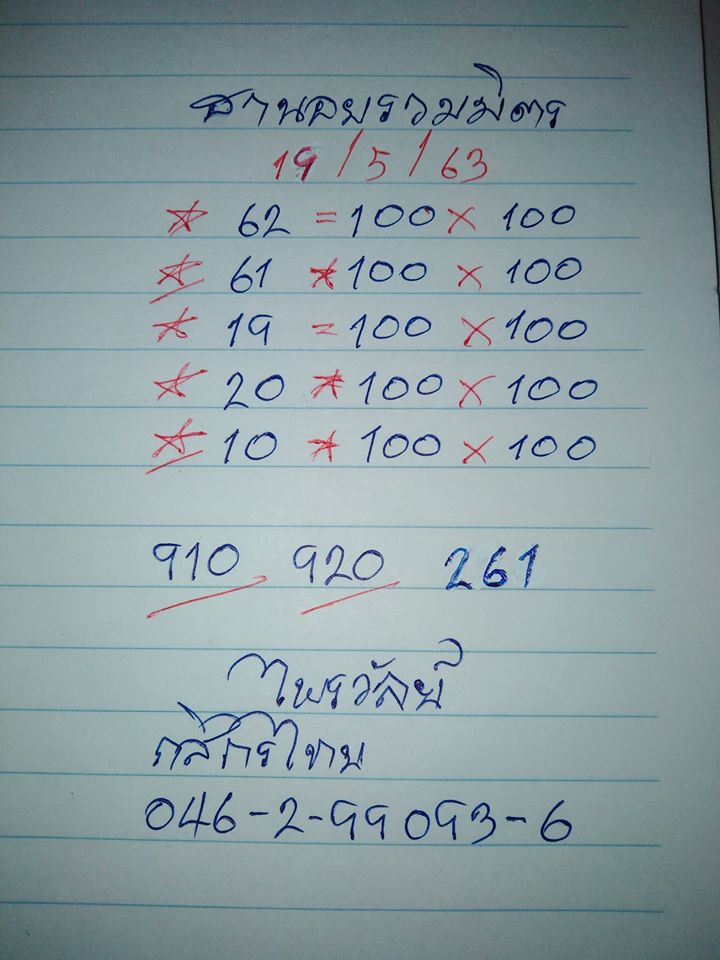 ฮานอยรวมมิตร
19/5/63
☆ 62 = 100 × 100
☆ 61 * 100 × 100
☆ 19 = 100 × 100
☆ 20 * 100 × 100
☆ 10 * 100 × 100
910 920 261
ไพรวัลย์
กสิกรไทย
046-2-99093-6